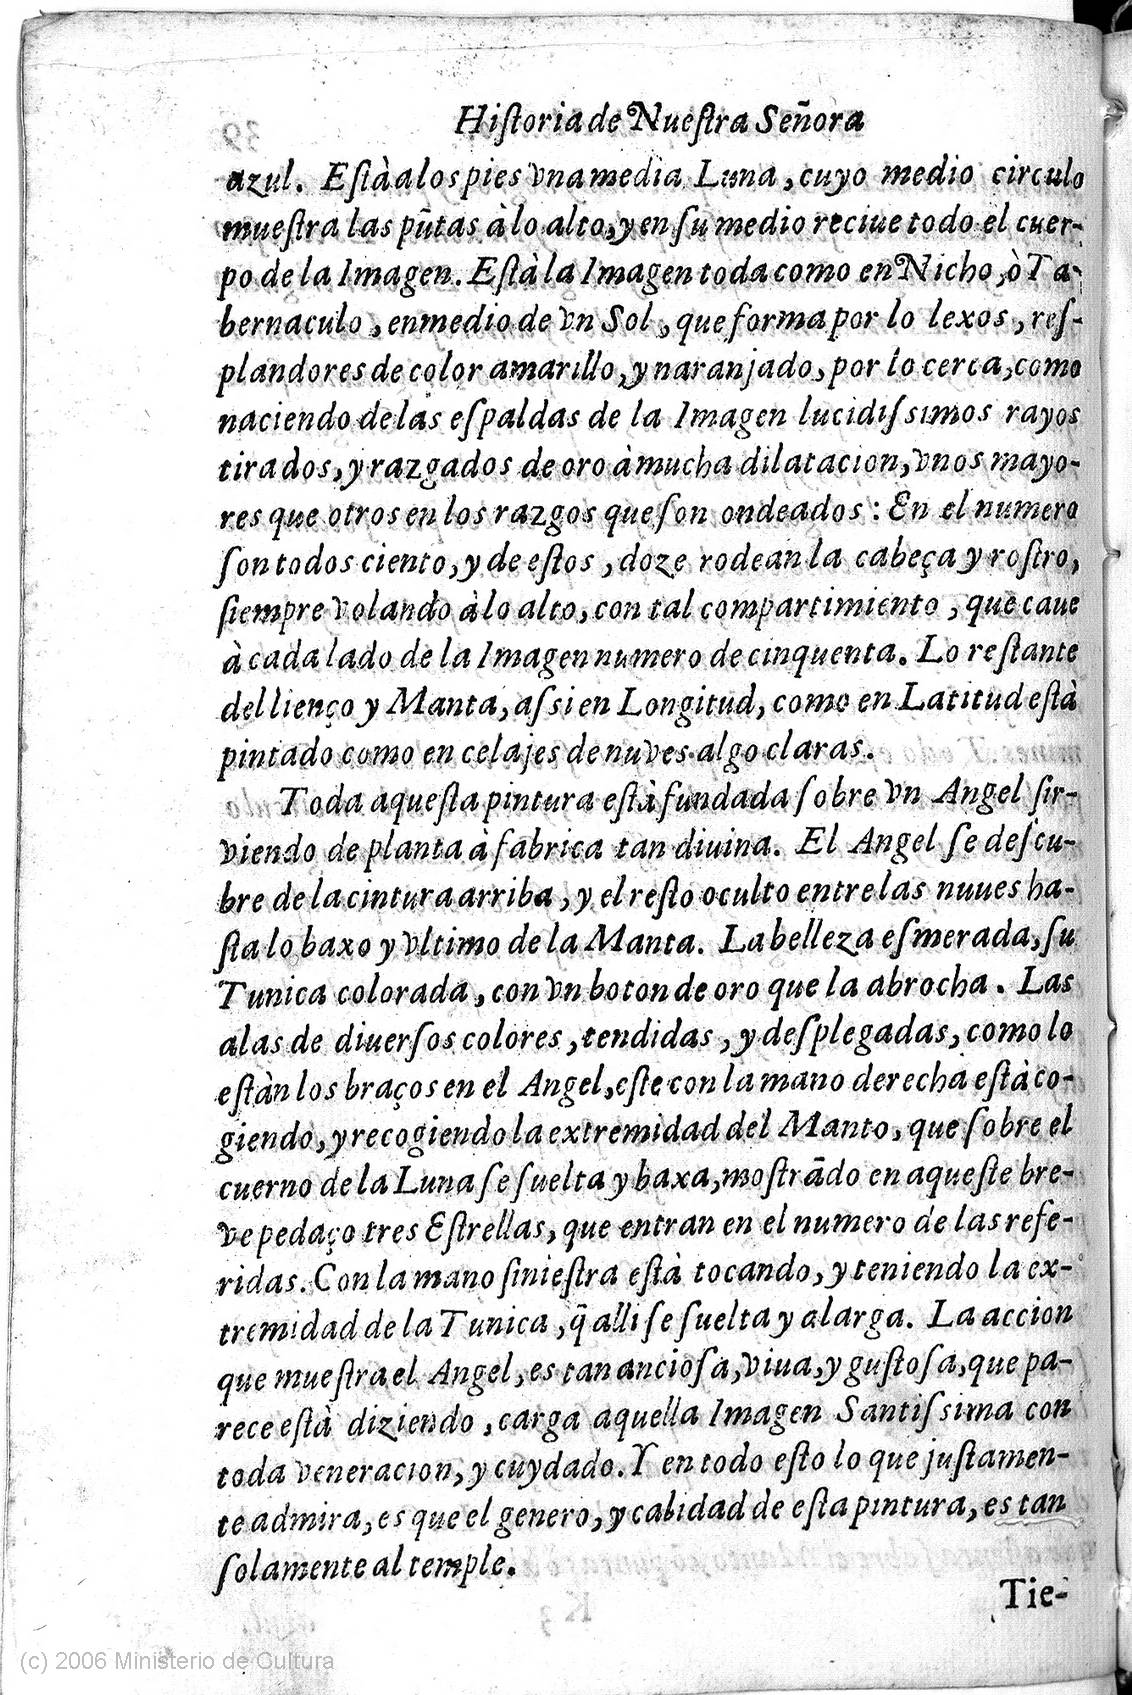 Hiſtoria de Nueſtra Señora
azul. Eſtà a los pies vna media Luna, cuyo medio circulo
mueſtra las pũtas à lo alto, y en ſu medio reciue todo el cuer-
po de la Imagen. Eſtà la Imagen toda como en Nicho, ò Ta-
bernaculo, enmedio de vn Sol, que forma por lo lexos, reſ-
plandores de color amarillo, y naranjado, por lo cerca, como
naciendo de las eſpaldas de la Imagen lucidiſsimos rayos
tirados, y razgados de oro à mucha dilatacion, vnos mayo-
res que otros en los razgos que ſon ondeados: En el numero
ſon todos ciento, y de eſtos, doze rodean la cabeça y roſtro,
ſiempre volando à lo alto, con tal compartimiento, que caue
à cada lado de la Imagen numero de cinquenta. Lo reſtante
del lienço y Manta, aſsi en Longitud, como en Latitud eſtà
pintado como en celajes de nuves algo claras.
Toda aqueſta pintura eſtà fundada ſobre vn Angel ſir-
viendo de planta à fabrica tan diuina. El Angel ſe deſcu-
bre de la cintura arriba, y el reſto oculto entre las nuues ha-
ſta lo baxo y vltimo de la Manta. La belleza eſmerada, ſu
Tunica colorada, con vn boton de oro que la abrocha. Las
alas de diuerſos colores, tendidas, y deſplegadas, como lo
eſtàn los braços en el Angel, eſte con la mano derecha eſtà co-
giendo, y recogiendo la extremidad del Manto, que ſobre el
cuerno de la Luna ſe ſuelta y baxa, moſtrãdo en aqueſte bre-
ve pedaço tres Eſtrellas, que entran en el numero de las refe-
ridas. Con la mano ſinieſtra eſtà tocando, y teniendo la ex-
tremidad de la Tunica, q̃ alli ſe ſuelta y alarga. La accion
que mueſtra el Angel, es tan anciosa, viua, y guſtoſa, que pa-
rece eſtà diziendo, carga aquella Imagen Santiſsima con
toda veneracion, y cuydado. Y en todo eſto lo que juſtamen-
te admira, es que el genero, y calidad de eſta pintura, es tan
ſolamente al temple.
Tie-
(c) 2006 Ministerio de Cultura